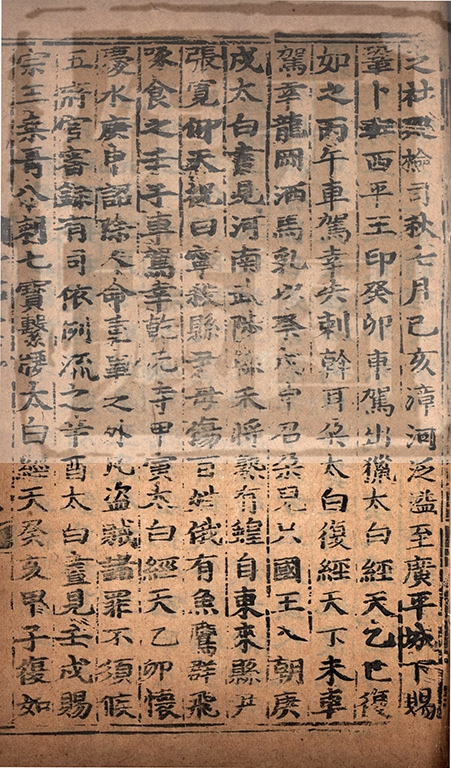 之社巡檢司秋七月己亥漳河泛溢至廣平城下賜
鞏卜班西平王印癸卯車駕出獵太白經天乙巳復
如之丙午車駕幸失剌斡耳朶太白復經天丁未車
駕幸龍岡洒馬乳以祭戊申召朶兒只國王入朝庚
戌太白晝見河南武陟縣禾將熟有蝗自東來縣尹
張寬仰天祝曰寧殺縣尹毋傷百姓俄有魚鷹群飛
啄食之壬子車駕幸乾元寺甲寅太白經天乙卯懷
慶水庚申詔除人命重事之外凡盜賊諸罪不須候
五府官審錄有司依例决之辛酉太白晝見壬戌賜
宗王桑哥八剌七寶繫腰太白經天癸亥甲子復如